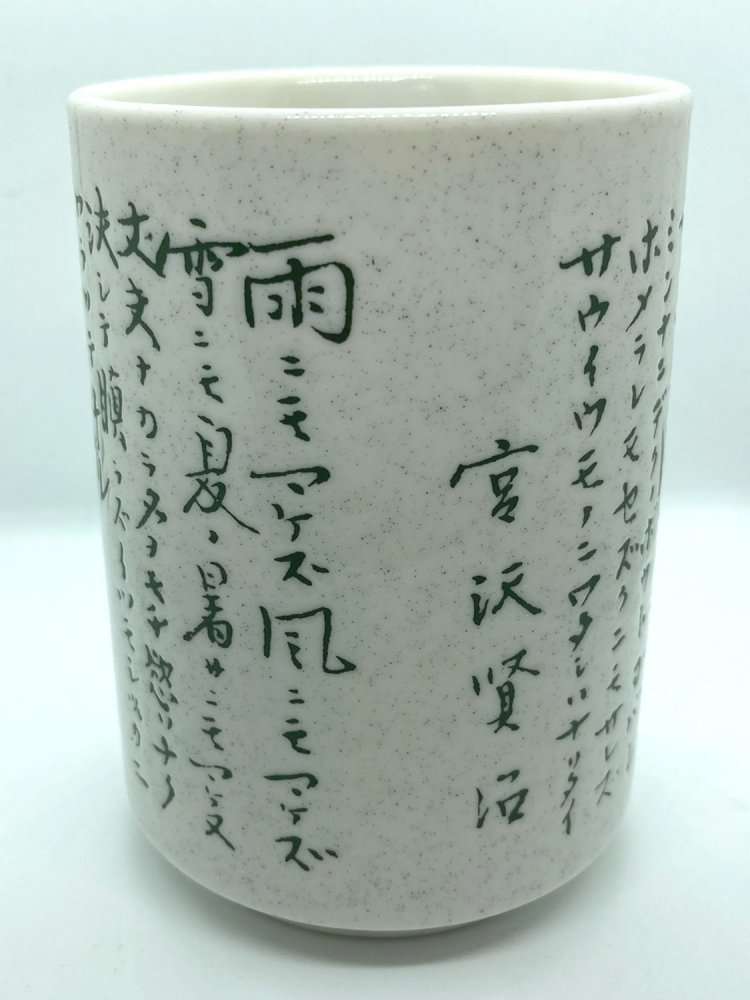 ミンナニデクノボートヨバレ
ホメラレモセズクニモサレズ
サウイウモノニワタシハナリタイ
宮沢賢治
雨ニモマケズ風ニモマケズ
雪ニモ夏ノ暑サニモマケヌ
丈夫ナカラダヲモチ慾ハナク
決シテ瞋ラズイツモシヅカニ